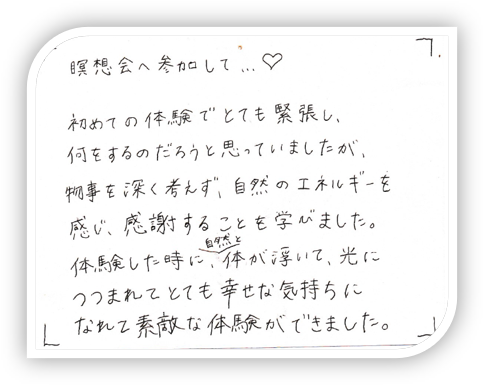 瞑想会へ参加して…♡
初めての体験でとても緊張し、
何をするのだろうと思っていましたが、
物事を深く考えず、自然のエネルギーを
感じ、感謝することを学びました。
自然と
体験した時に、体が浮いて、光に
つつまれてとても幸せな気持ちに
なれて素敵な体験ができました。